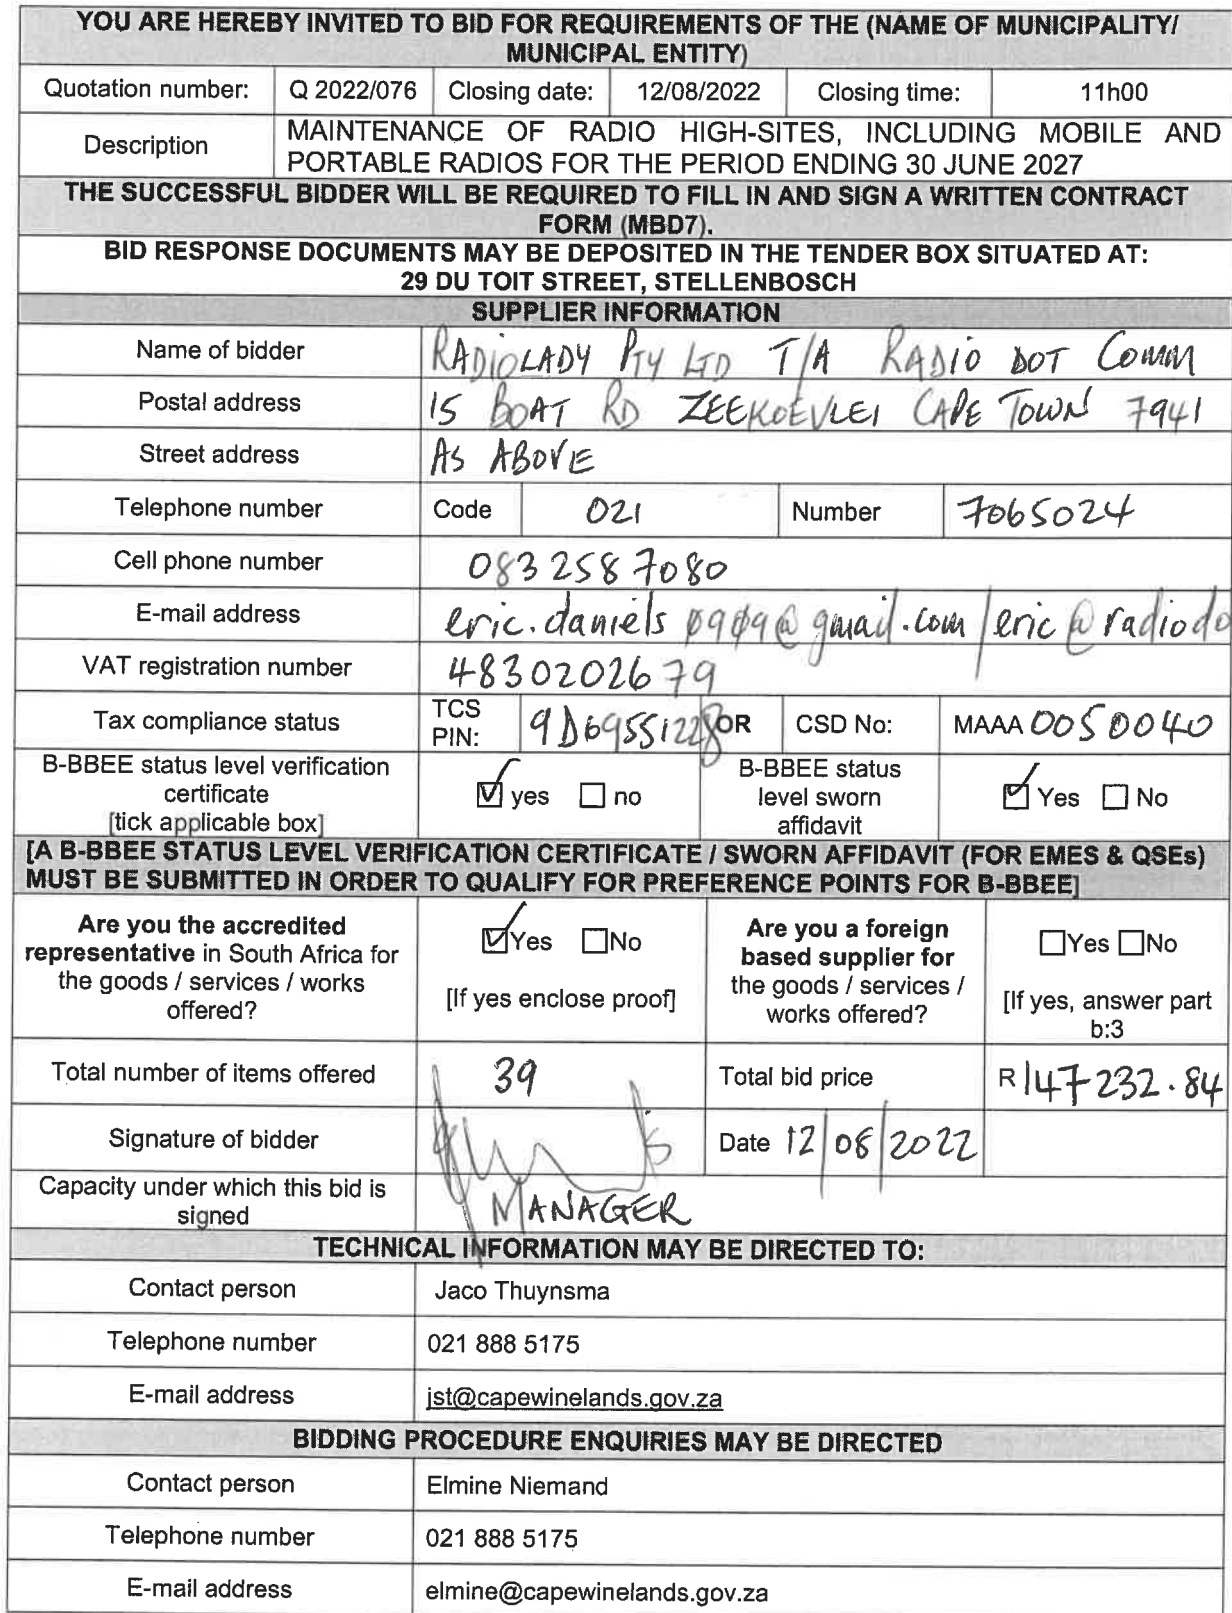 YOU ARE HEREBY INVITED TO BID FOR REQUIREMENTS OF THE (NAME OF MUNICIPALITY/
MUNICIPAL ENTITY)
Quotation number: Q 2022/076 Closing date: 12/08/2022 Closing time: 11h00
Description
MAINTENANCE OF RADIO HIGH-SITES, INCLUDING MOBILE AND
PORTABLE RADIOS FOR THE PERIOD ENDING 30 JUNE 2027
THE SUCCESSFUL BIDDER WILL BE REQUIRED TO FILL IN AND SIGN A WRITTEN CONTRACT
FORM (MBD7).
BID RESPONSE DOCUMENTS MAY BE DEPOSITED IN THE TENDER BOX SITUATED AT:
29 DU TOIT STREET, STELLENBOSCH
SUPPLIER INFORMATION
Name of bidder RADIOLADY PTY LTD T/A RADIO DOT COMM
Postal address 15 BOAT RD ZEEKOEVLEI CAPE TOWN 7941
Street address AS ABOVE
Telephone number Code 021 Number 7065024
Cell phone number 083 258 7080
E-mail address eric.daniels0909@gmail.com/eric@radiodo
VAT registration number 4830202679
Tax compliance status TCS PIN: 9D69551228 OR CSD No: MAAA 0050040
B-BBEE status level verification
certificate
[tick applicable box]
yes no
B-BBEE status
level sworn
affidavit
Yes No
[A B-BBEE STATUS LEVEL VERIFICATION CERTIFICATE / SWORN AFFIDAVIT (FOR EMES & QSEs)
MUST BE SUBMITTED IN ORDER TO QUALIFY FOR PREFERENCE POINTS FOR B-BBEE]
Are you the accredited
representative in South Africa for
the goods / services / works
offered?
Yes No
[If yes enclose proof]
Are you a foreign
based supplier for
the goods / services /
works offered?
Yes No
[If yes, answer part
b:3
Total number of items offered 39 Total bid price R 147 232.84
Signature of bidder Date 12/08/2022
Capacity under which this bid is
signed
MANAGER
TECHNICAL INFORMATION MAY BE DIRECTED TO:
Contact person Jaco Thuynsma
Telephone number 021 888 5175
E-mail address jst@capewinelands.gov.za
BIDDING PROCEDURE ENQUIRIES MAY BE DIRECTED
Contact person Elmine Niemand
Telephone number 021 888 5175
E-mail address elmine@capewinelands.gov.za